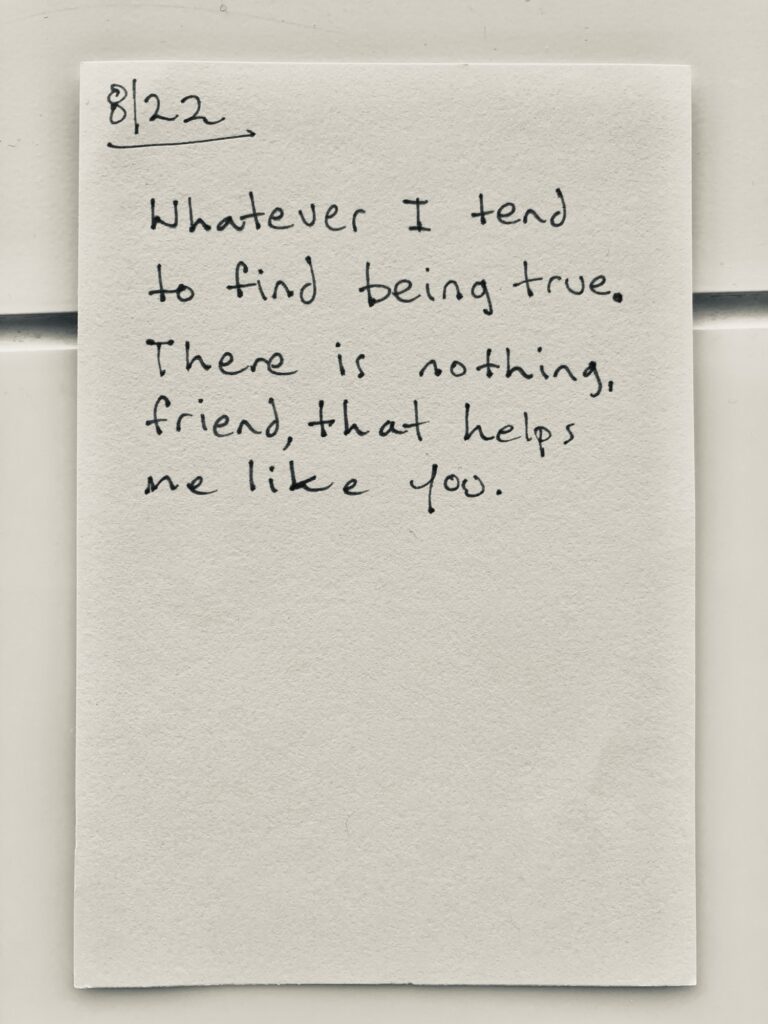 8/22
Whatever I tend
to find being true.
There is nothing,
friend, that helps
me like you.